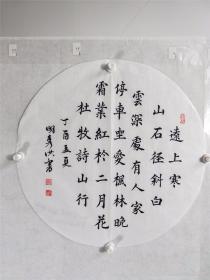 遠上寒
山石径斜白
雲深處有人家
停車坐愛楓林晚
霜葉紅於二月花
杜牧詩山行
丁酉夏
書